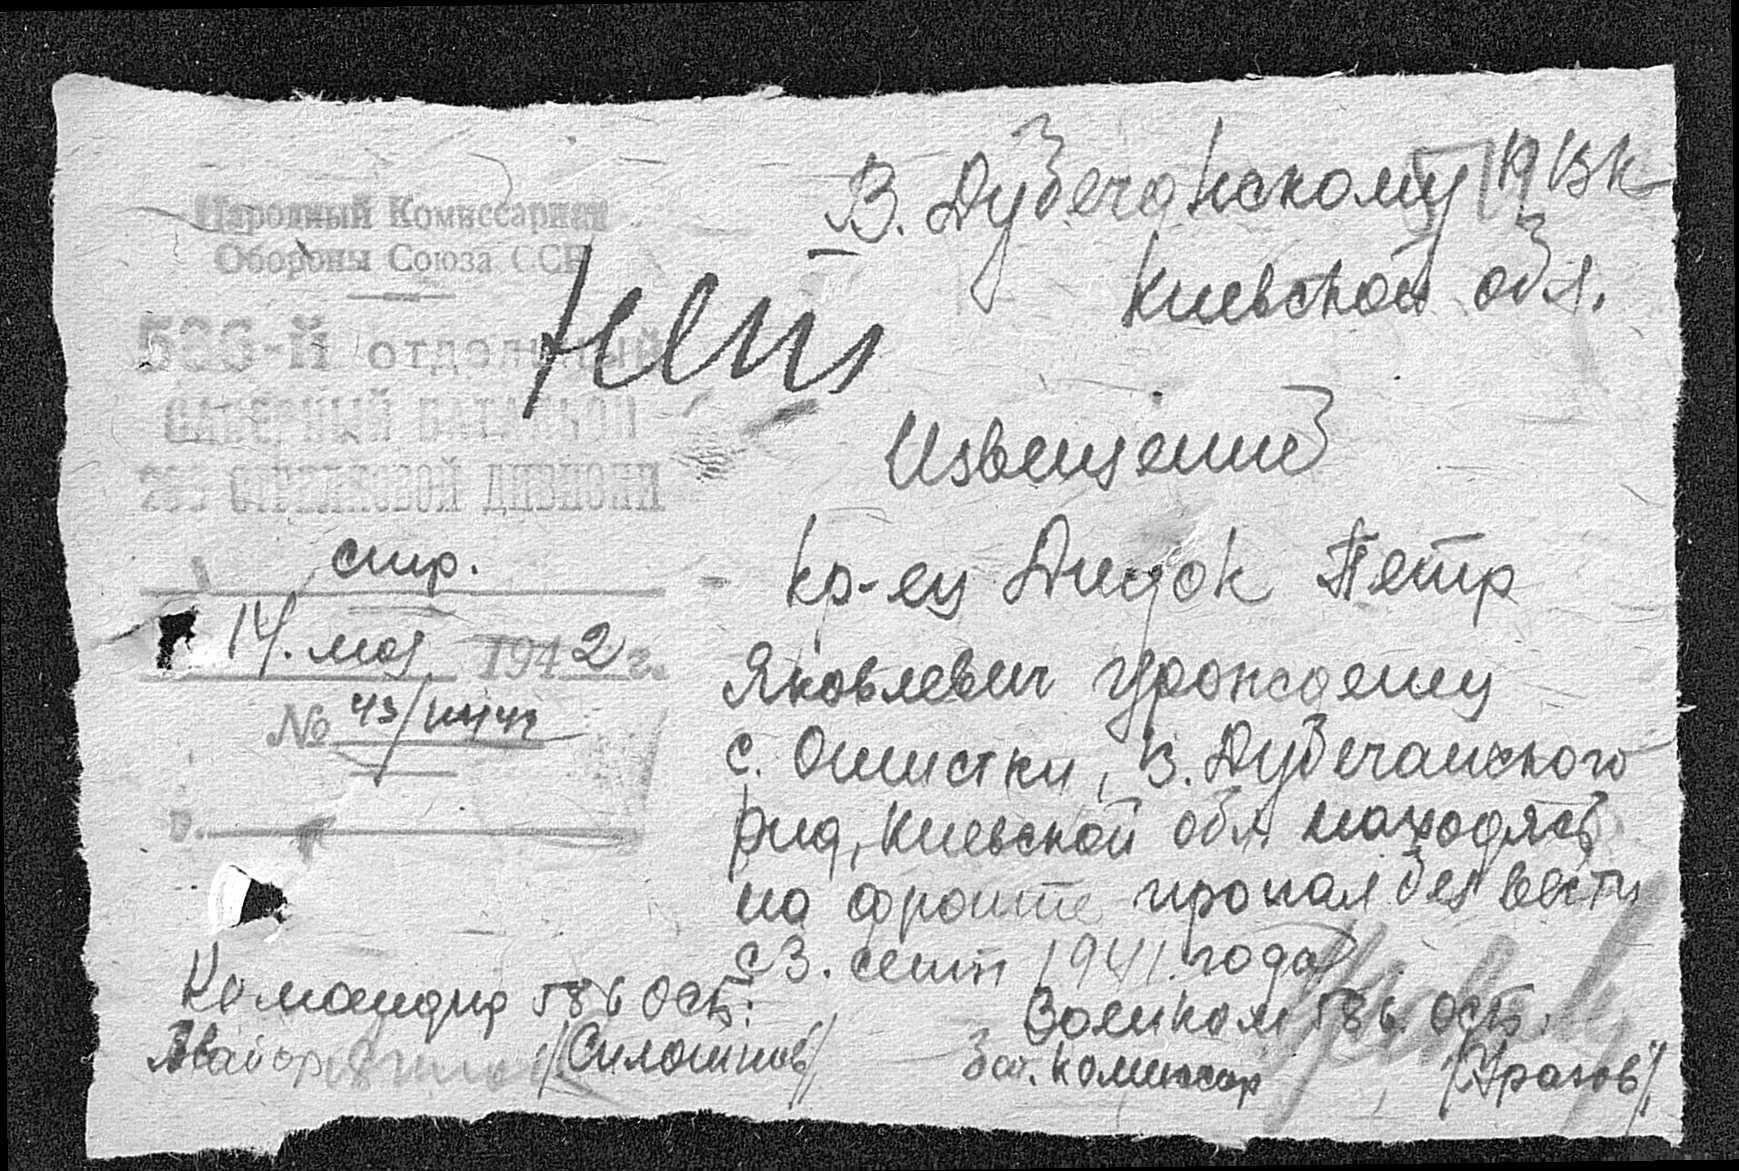 Народный Комиссариат
Обороны Союза ССР
586-й отдельный
САПЕРНЫЙ БАТАЛЬОН
СТРЕЛКОВОЙ ДИВИЗИИ
стр.
14. мая 1942 г.
№ 43/
г.
Нет
В. Дубечанскому РВК
Киевской обл.
Извещение
кр-ец Дидок Петр
Яковлевич урожденец
с. Ошистки, В. Дубечанского
р-на, Киевской обл. находясь
на фронте пропал без вести
с 3. сент 1941. года
Командир 586 ОСБ:
Майор /Силошнов/
Военком 586. ОСБ.
Бат. Комиссар /Урагов/